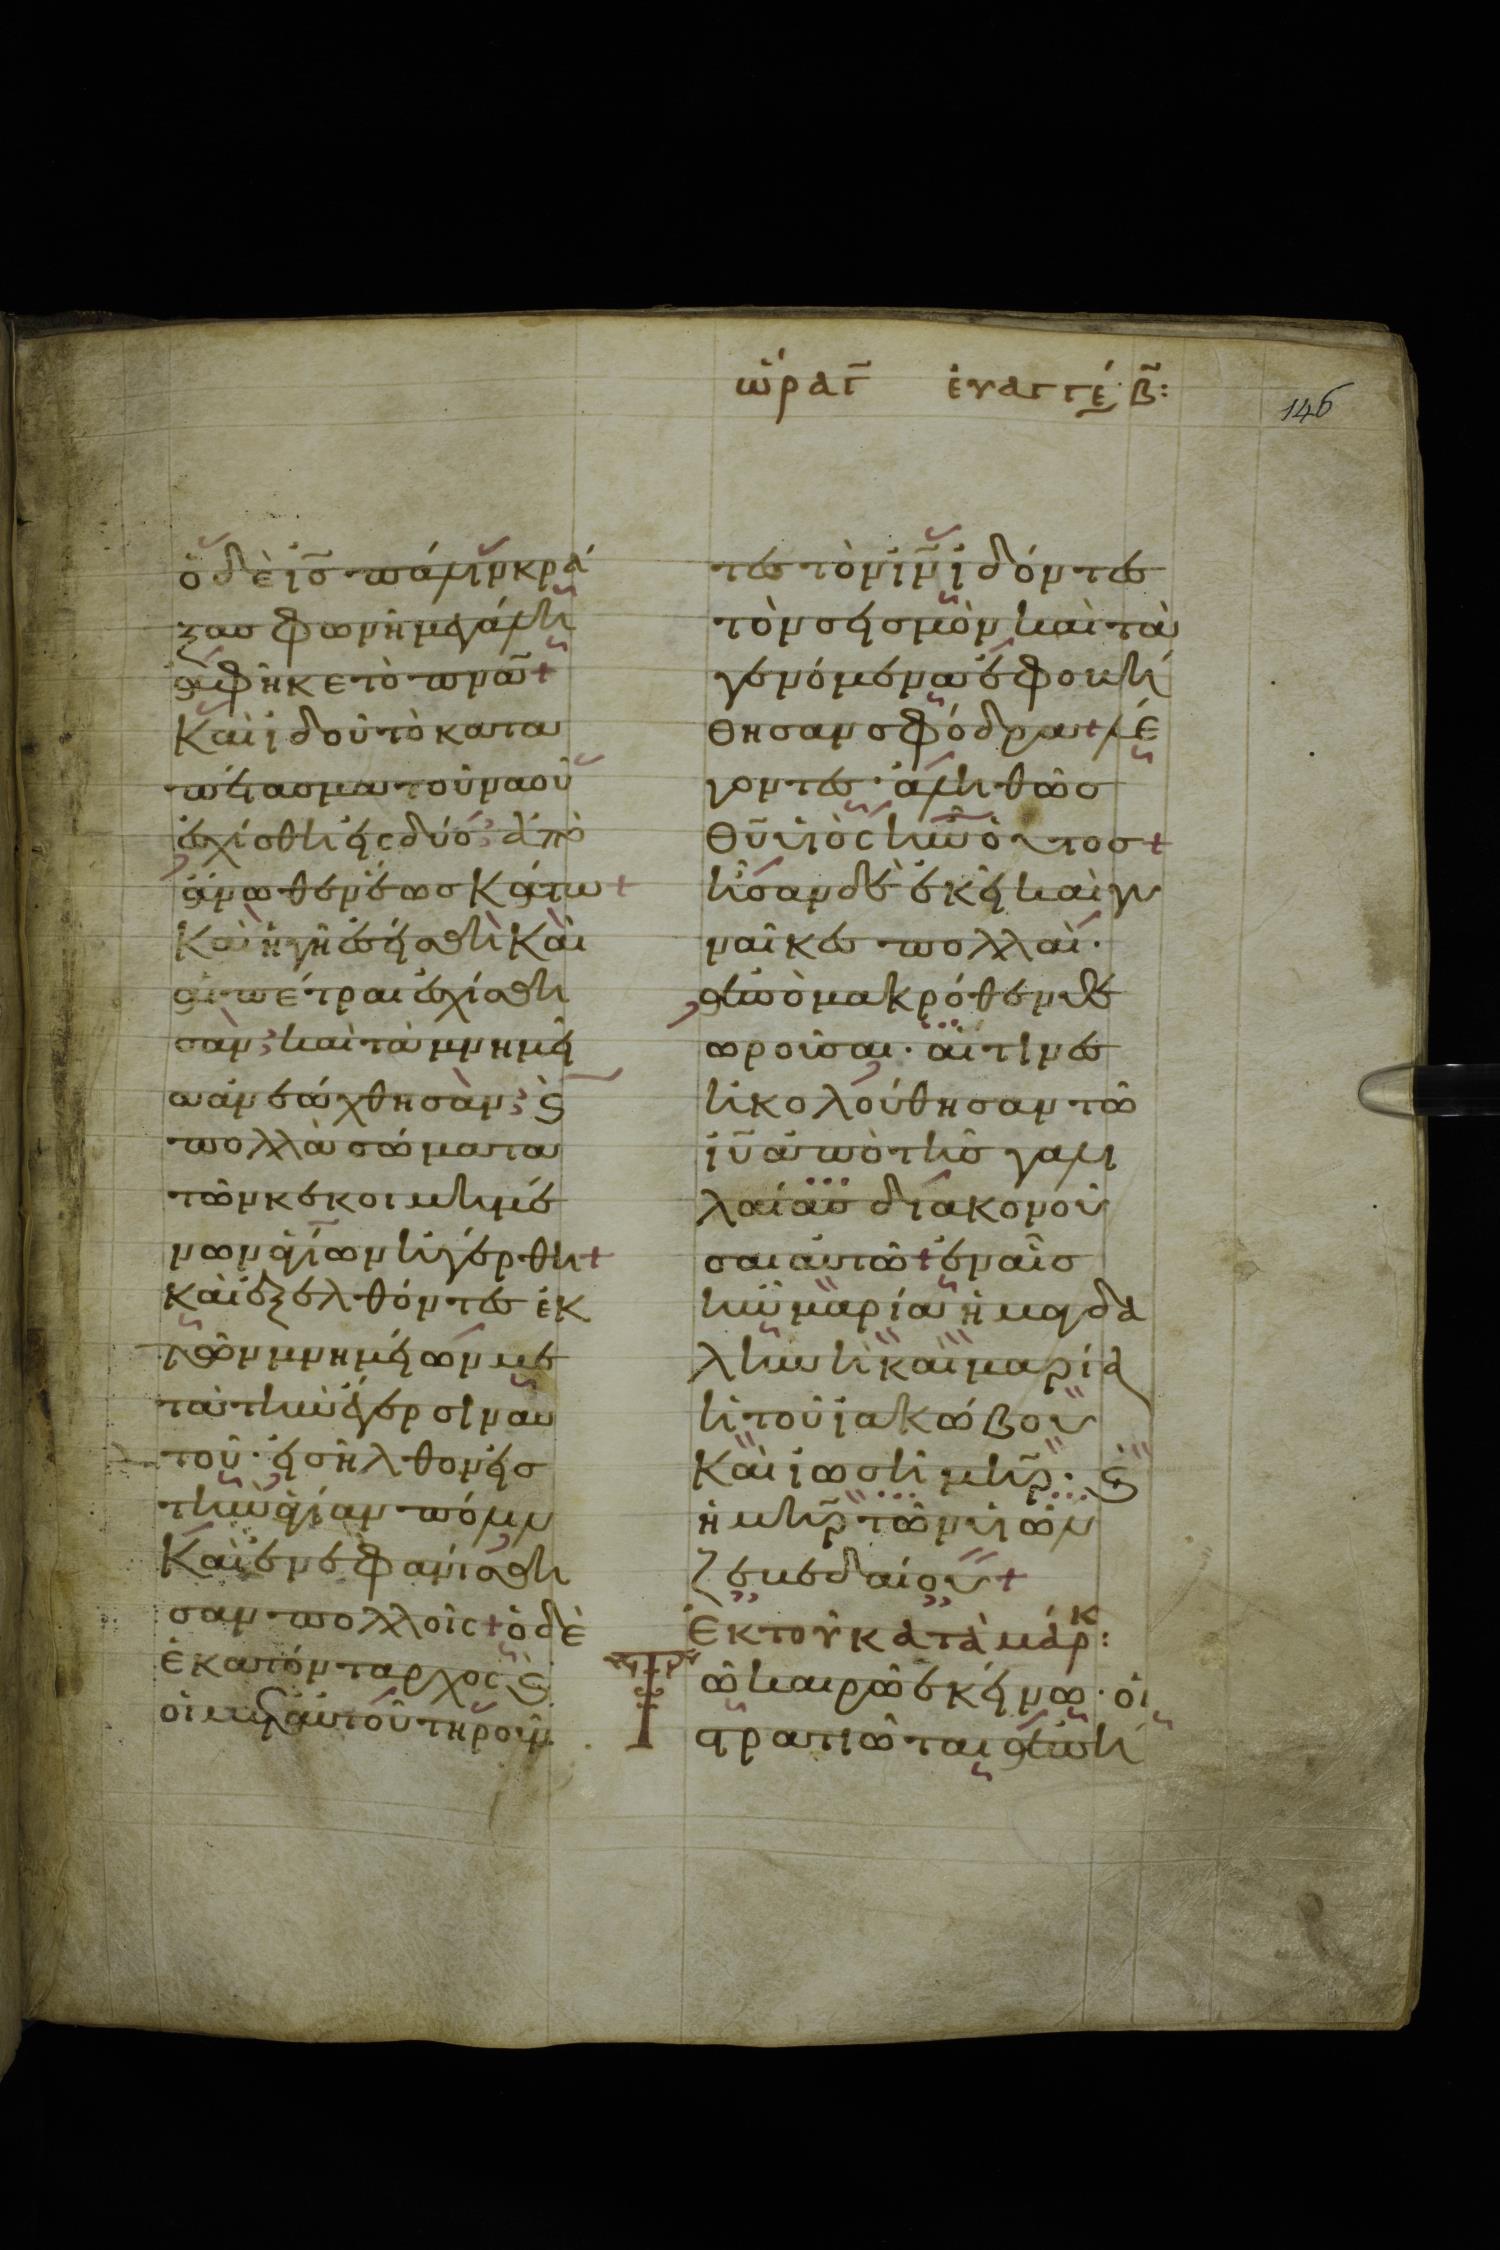 ὥρα Γ̄ ἐυαγγέ. Β̄:
146
ὁ δὲ ις̄ πάλιν κρά
ξας φωνῆ μεγάλη
ἀφῆκε τὸ πνᾶ +
Καὶ ἰδοὺ τὸ κατα
πέτασμα τοῦ ναοῦ
ἐσχίσθη εἰς δύο· ἀπὸ
ἄνωθεν ἕως κάτω +
Καὶ ἡ γῆ ἐσείσθη καὶ
αἱ πέτραι ἐσχίσθη
σαν· καὶ τὰ μνημεῖ
α ἀνεώχθησαν· ϗ
πολλὰ σώματα
τῶν κεκοιμημέ
νων ἁγίων ἠγέρθη +
καὶ ἐξελθόντες ἐκ
τῶν μνημείων με
τὰ τὴν ἔγερσιν αυ
τοῦ· εἰσῆλθον εἰς
τὴν ἁγίαν πόλιν
Καὶ ἐνεφανίσθη
σαν πολλοῖς + ὁ δὲ
ἑκατόνταρχος ϗ
οἱ μετ αὐτοῦ τηροῦν
τες τὸν ιν̄ ἰδόντες
τὸν σεισμὸν καὶ τὰ
γενόμενα ἐφοβή
θησαν σφόδρα + λέ
γοντες· ἀληθῶς
θῡ υἱὸς ἦν οὗτος +
ἦσαν δὲ ἐκεῖ καὶ γυ
ναῖκες πολλαὶ·
ἀπὸ μακρόθεν θε
ωροῦσαι· αἵτινες
ἠκολούθησαν τῶ
ιῡ ἀπὸ τῆς γαλι
λαίας διακονοῦ
σαι αὐτῶ + ἐν αἷς
ἦν μαρία ἡ μαγδα
ληνὴ καὶ μαρία
ἡ τοῦ ἰακώβου
Καὶ ἰωσῆ μηρ̄· ϗ
ἡ μηρ̄ τῶν υἱῶν
ζεβεδαίου +
Ἐκ τοῦ κατὰ μάρκ:
Τῶ καιρῶ ἐκείνω· οἱ
στρατιῶται ἀπή